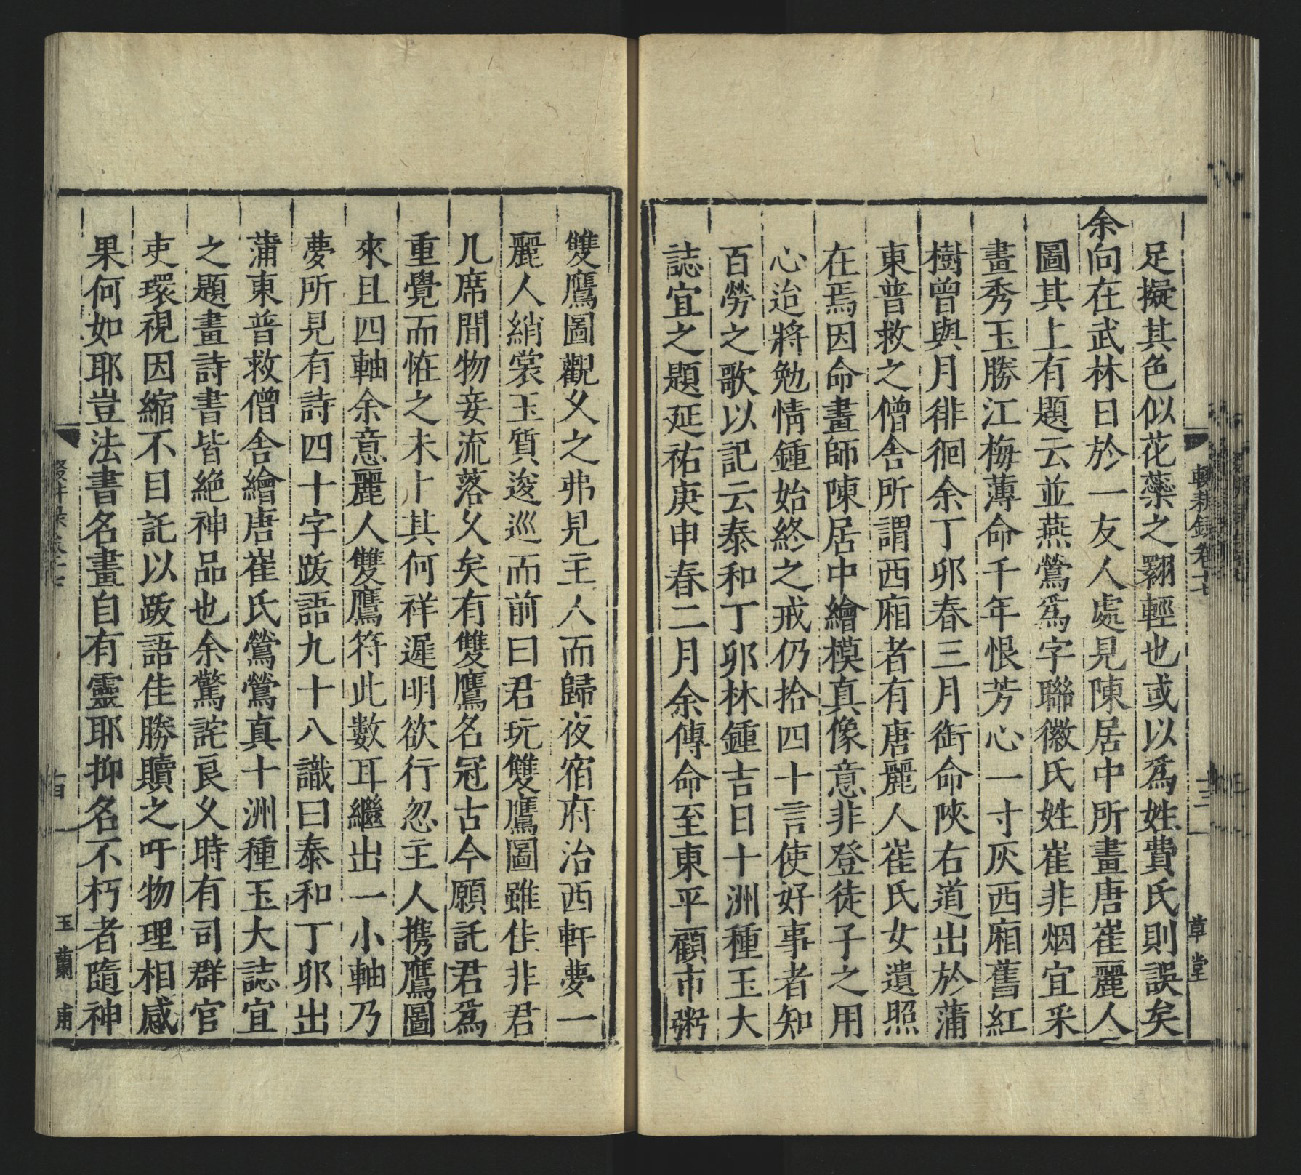 足擬其色似花蘂之翾輕也或以爲姓費氏則誤矣
余向在武林日於一友人處見陳居中所畫唐崔麗人
圖其上有題云並燕鶯爲字聯徽氏姓崔非烟宜采
畫秀玉勝江梅薄命千年恨芳心一寸灰西廂舊紅
樹曾與月徘徊余丁卯春三月銜命陜右道出於蒲
東普救之僧舍所謂西廂者有唐麗人崔氏女遺照
在焉因命畫師陳居中繪模真像意非登徒子之用
心迨將勉情鍾始終之戒仍拾四十言使好事者知
百勞之歌以記云泰和丁卯林鍾吉日十洲種玉大
誌宜之題延祐庚申春二月余傳命至東平顧市粥
雙鷹圖觀乆之弗見主人而歸夜宿府治西軒夢一
麗人綃裳玉質逡巡而前曰君玩雙鷹圖雖佳非君
几席間物妾流落乆矣有雙鷹名冠古今願託君爲
重覺而怪之未卜其何祥遲明欲行忽主人携鷹圖
來且四軸余意麗人雙鷹符此數耳繼出一小軸乃
夢所見有詩四十字跋語九十八識曰泰和丁卯出
蒲東普救僧舍繪唐崔氏鶯鶯真十洲種玉大誌宜
之題畫詩書皆絶神品也余驚詫良乆時有司群官
吏環視因縮不目託以跋語佳勝贖之吁物理相感
果何如耶豈法書名畫自有靈耶抑名不朽者隨神
玉蘭
草堂